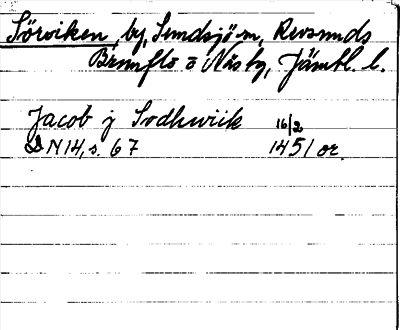 Sörviken, by, Sundsjö sn, Revsunds
Brunflo o Näs tg, Jämtl. l.
Jacob j Sydhwiik 16/2
DN 14, s. 67 1451 or.